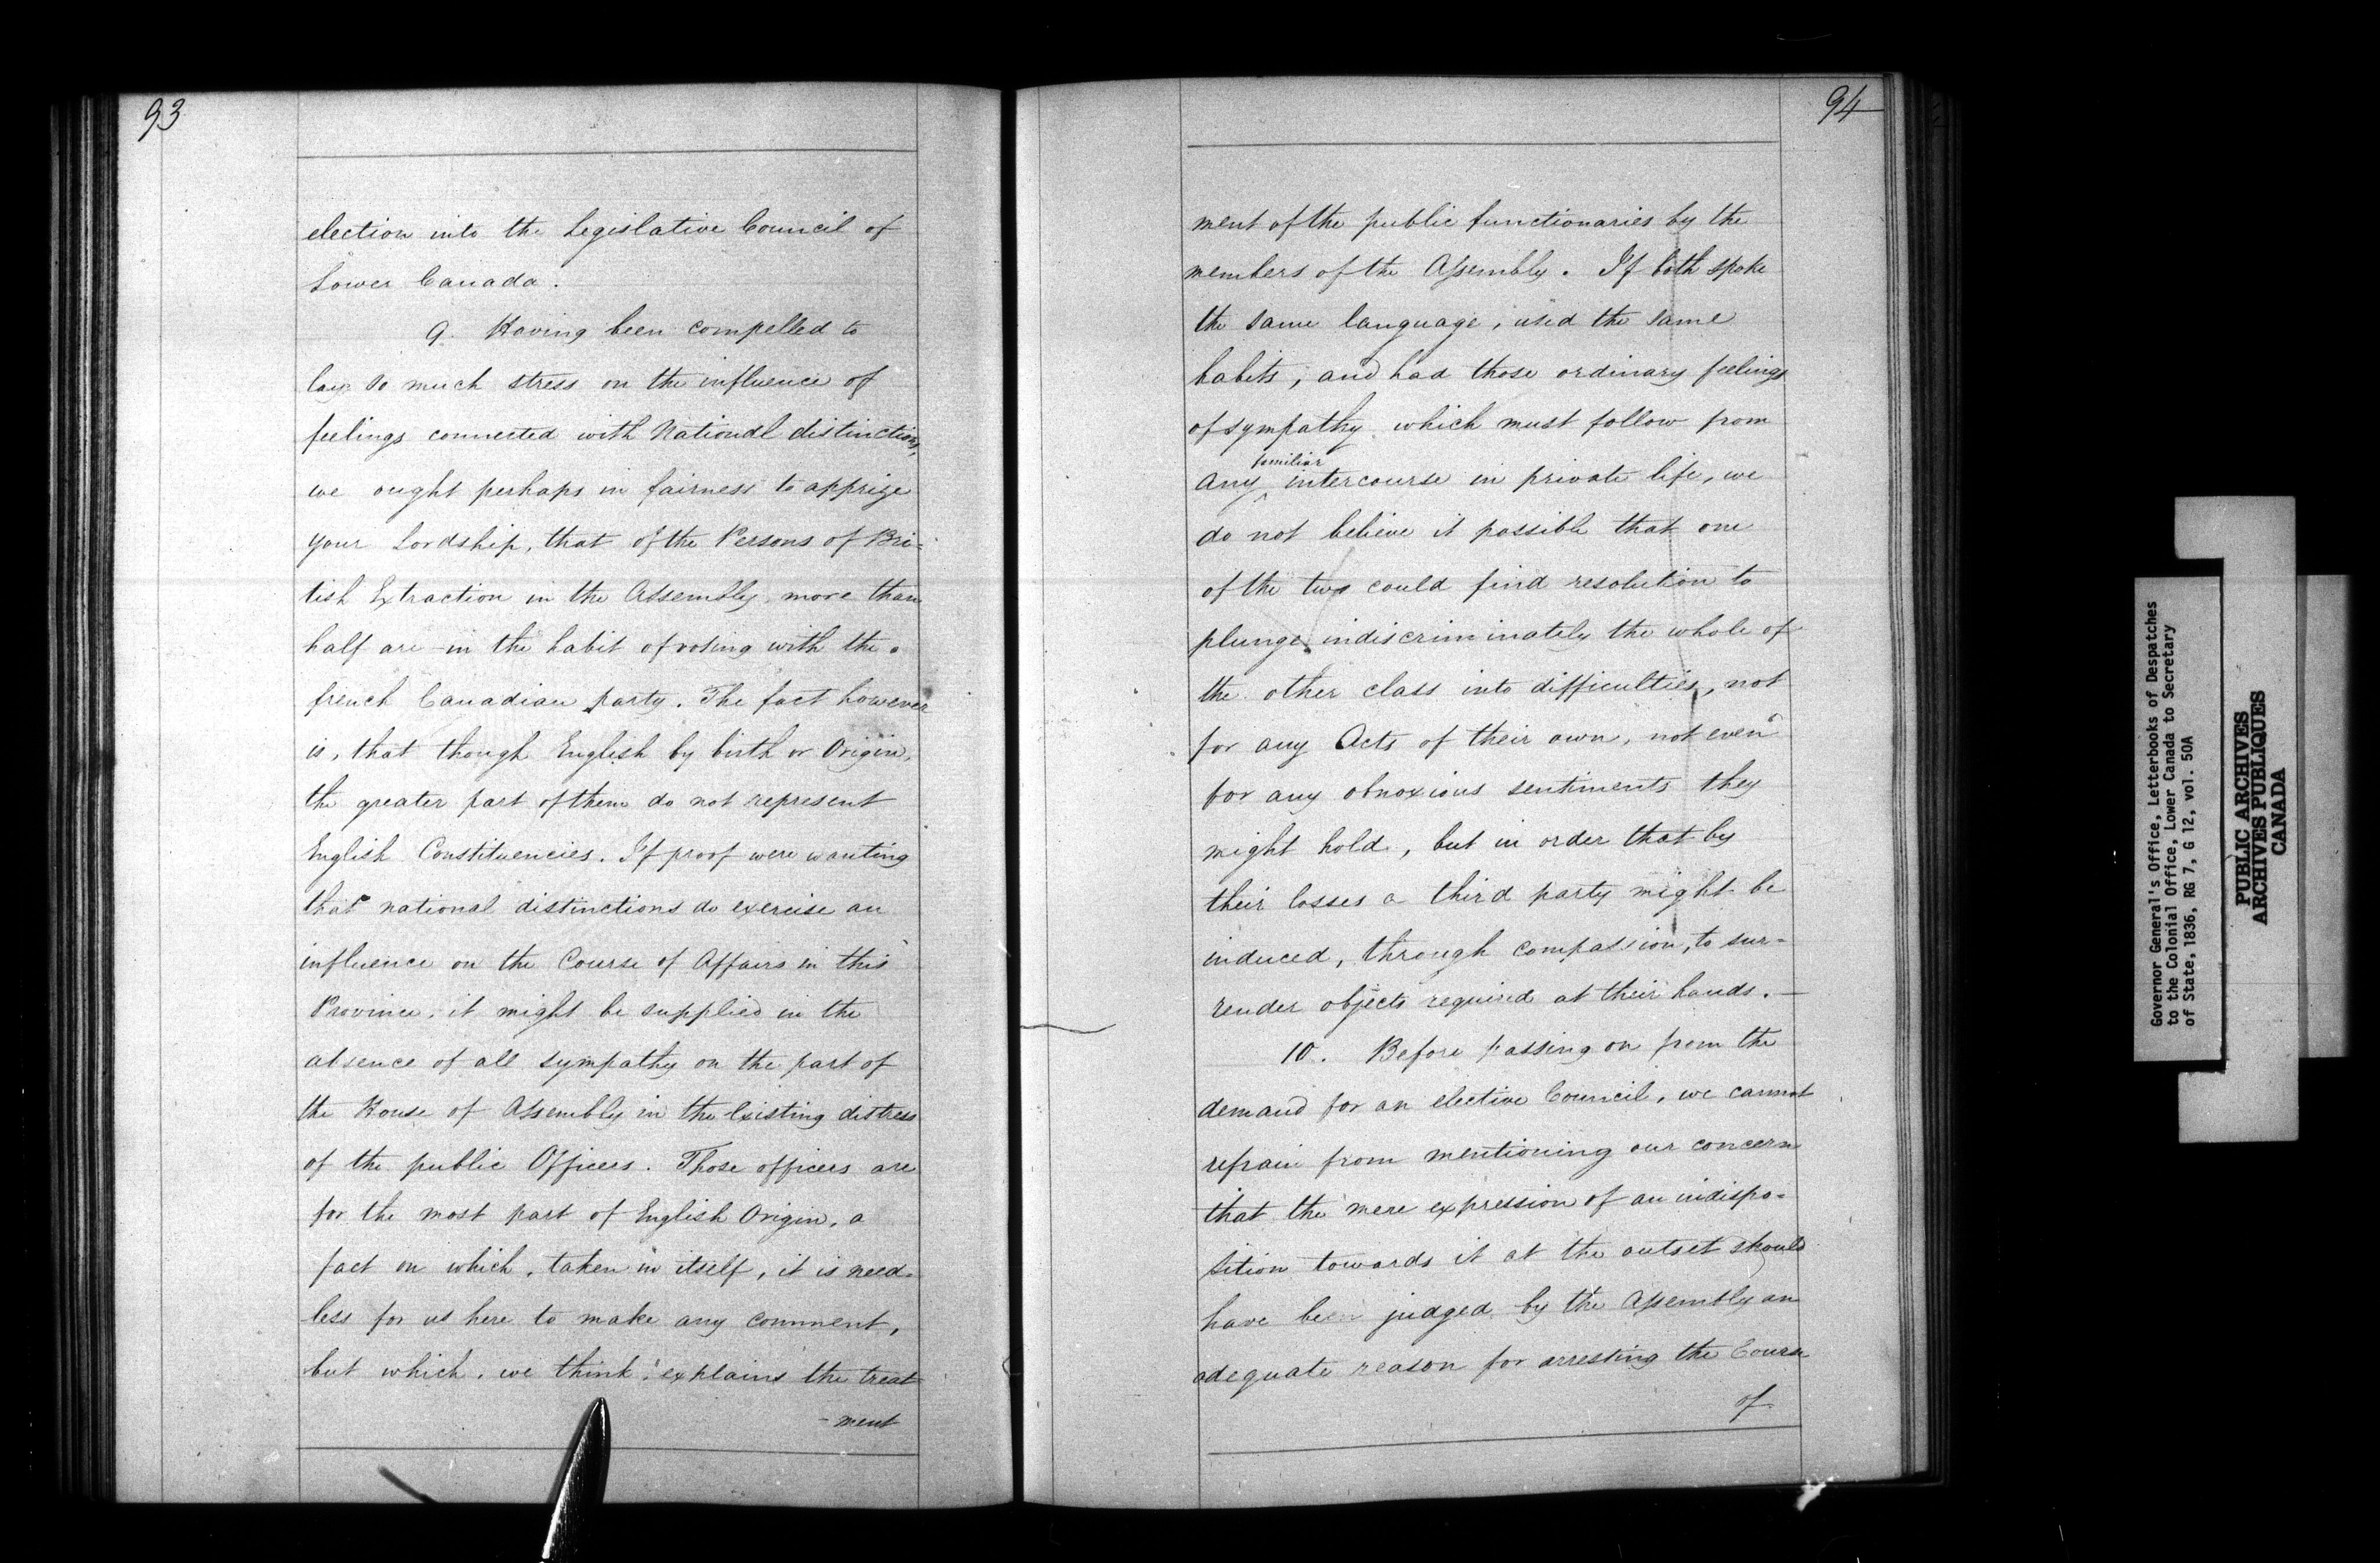 93
election into the Legislative Council of
Lower Canada.
9. Having been compelled to
lay so much stress on the influence of
feelings connected with National distinctions,
we ought perhaps in fairness to apprize
your Lordship, that of the Persons of Bri=
tish Extraction in the Assembly more than
half are in the habit of voting with the
french Canadian party. The fact however
is, that though English by birth or Origin,
the greater part of them do not represent
English Constituencies. If proof were wanting
that national distinctions do exercise an
influence on the Course of Affairs in this
Province, it might be supplied in the
absence of all sympathy on the part of
the House of Assembly in the Existing distress
of the public Officers. Those officers are
for the most part of English Origin, a
fact on which, taken in itself, it is need=
less for us here to make any comment,
but which, we think, explains the treat=
-ment
94
ment of the public functionaries by the
members of the Assembly. If both spoke
the same language, used the same
habits, and had those ordinary feelings
of sympathy which must follow from
any familiar intercourse in private life, we
do not believe it possible that one
of the two could find resolution to
plunge indiscriminately the whole of
the other class into difficulties, not
for any Acts of their own, not even
for any obnoxious sentiments they
might hold, but in order that by
their losses a third party might be
induced, through compassion, to sur=
render objects required at their hands. —
10. Before passing on from the
demand for an elective Council, we cannot
refrain from mentioning our concern
that the mere expression of an indispo=
sition towards it at the outset should
have been judged by the Assembly an
adequate reason for arresting the Course
of
Governor General's Office, Letterbooks of Despatches
to the Colonial Office, Lower Canada to Secretary
of State, 1836, RG 7, G 12, vol. 50A
PUBLIC ARCHIVES
ARCHIVES PUBLIQUES
CANADA